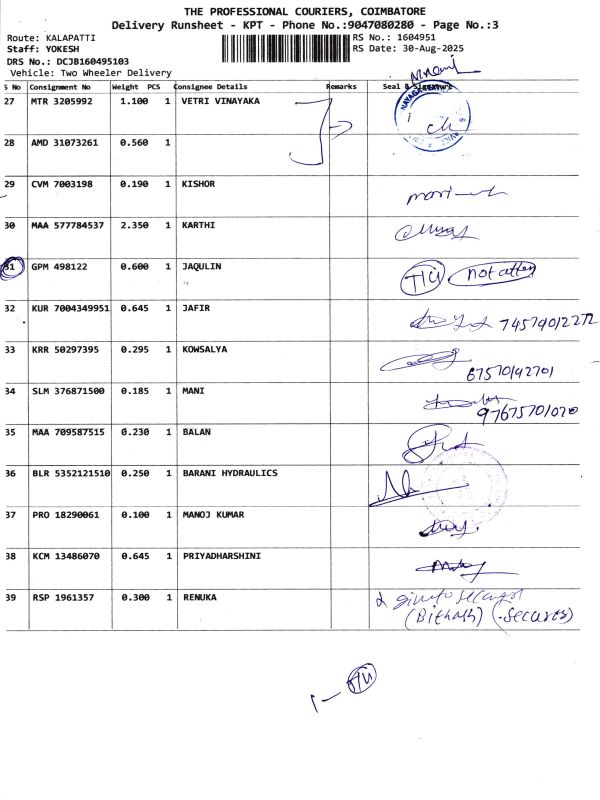 THE PROFESSIONAL COURIERS, COIMBATORE
Delivery Runsheet - KPT - Phone No.:9047080280 - Page No.:3
Route: KALAPATTI
RS No.: 1604951
Staff: YOKESH
RS Date: 30-Aug-2025
DRS No.: DCJB160495103
Vehicle: Two Wheeler Delivery
S No Consignment No Weight PCS Consignee Details Remarks Seal & Signature
27 MTR 3205992 1.100 1 VETRI VINAYAKA
28 AMD 31073261 0.560 1
29 CVM 7003198 0.190 1 KISHOR
30 MAA 577784537 2.350 1 KARTHI
31 GPM 498122 0.600 1 JAQULIN not atten
32 KUR 7004349951 0.645 1 JAFIR
33 KRR 50297395 0.295 1 KOWSALYA
34 SLM 376871500 0.185 1 MANI
35 MAA 709587515 0.230 1 BALAN
36 BLR 5352121510 0.250 1 BARANI HYDRAULICS
37 PRO 18290061 0.100 1 MANOJ KUMAR
38 KCM 13486070 0.645 1 PRIYADHARSHINI
39 RSP 1961357 0.300 1 RENUKA